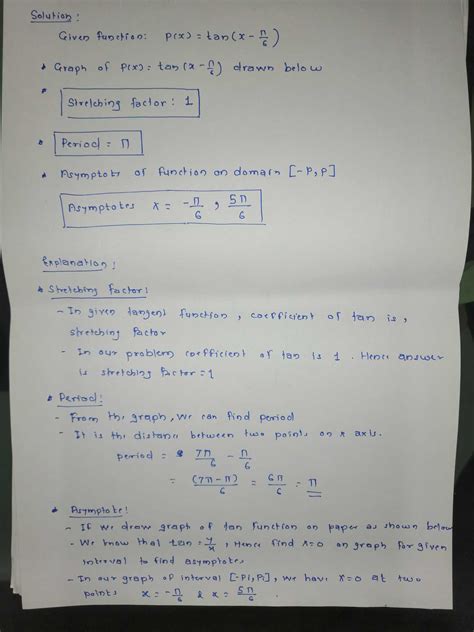 Solution :
Given function: P(x) = tan(x - π/6)
• Graph of P(x) = tan(x - π/6) drawn below
• Stretching factor : 1
• Period = π
• Asymptots of function on domain [-P, P]
Asymptotes x = -π/6 , 5π/6
Explanation :
• Stretching Factor :
- In given tangent function, coefficient of tan is,
stretching factor
- In our problem coefficient of tan is 1. Hence answer
is stretching factor = 1
• Period :
- From the graph, we can find period
- It is the distance between two points on x axis.
period = 7π/6 - π/6
= (7π - π)/6 = 6π/6 = π
• Asymptote :
- If we draw graph of tan function on paper as shown below
- We know that tan = y/x, Hence find x=0 on graph for given
interval to find asymptotes
- In our graph of interval [-Pi, Pi], we have x=0 at two
points x = -π/6 & x = 5π/6